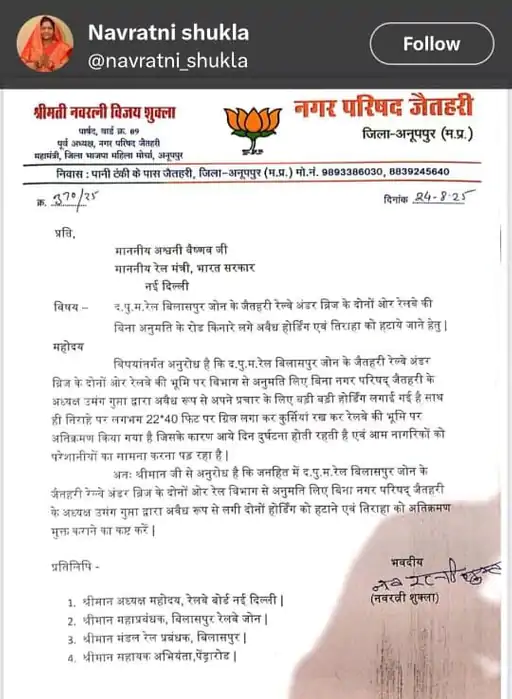 Navratni shukla
@navratni_shukla
Follow
श्रीमती नवरत्नी विजय शुक्ला
पार्षद, वार्ड क्र. 09
पूर्व अध्यक्ष, नगर परिषद जैतहरी
महामंत्री, जिला भाजपा महिला मोर्चा, अनूपपुर
नगर परिषद जैतहरी
जिला-अनूपपुर (म.प्र.)
निवास : पानी टंकी के पास जैतहरी, जिला-अनूपपुर (म.प्र.) मो.नं. 9893386030, 8839245640
क्र. 370/25
दिनांक 24-8-25
प्रति,
माननीय अश्वनी वैष्णव जी
माननीय रेल मंत्री, भारत सरकार
नई दिल्ली
विषय – द.पु.म.रेल बिलासपुर जोन के जैतहरी रेल्वे अंडर ब्रिज के दोनों ओर रेलवे की
बिना अनुमति के रोड किनारे लगे अवैध होर्डिंग एवं तिराहा को हटाये जाने हेतु |
महोदय
विषयांतर्गत अनुरोध है कि द.पु.म.रेल बिलासपुर जोन के जैतहरी रेल्वे अंडर
ब्रिज के दोनों ओर रेलवे की भूमि पर विभाग से अनुमति लिए बिना नगर परिषद् जैतहरी के
अध्यक्ष उमंग गुप्ता द्वारा अवैध रूप से अपने प्रचार के लिए बड़ी बड़ी होर्डिंग लगाई गई है साथ
ही तिराहे पर लगभग 22*40 फिट पर ग्रिल लगा कर कुर्सियां रख कर रेलवे की भूमि पर
अतिक्रमण किया गया है जिसके कारण आये दिन दुर्घटना होती रहती है एवं आम नागरिकों को
परेशानीयों का सामना करना पड़ रहा है |
अतः श्रीमान जी से अनुरोध है कि जनहित में द.पु.म.रेल बिलासपुर जोन के
जैतहरी रेल्वे अंडर ब्रिज के दोनों ओर रेल विभाग से अनुमति लिए बिना नगर परिषद् जैतहरी
के अध्यक्ष उमंग गुप्ता द्वारा अवैध रूप से लगी दोनों होर्डिंग को हटाने एवं तिराहा को अतिक्रमण
मुक्त कराने का कष्ट करें |
प्रतिलिपि -
भवदीय
नवरत्नी शुक्ला
(नवरत्नी शुक्ला)
1. श्रीमान अध्यक्ष महोदय, रेलवे बोर्ड नई दिल्ली |
2. श्रीमान महाप्रबंधक, बिलासपुर रेलवे जोन |
3. श्रीमान मंडल रेल प्रबंधक, बिलासपुर |
4. श्रीमान सहायक अभियंता,पेंड्रारोड |